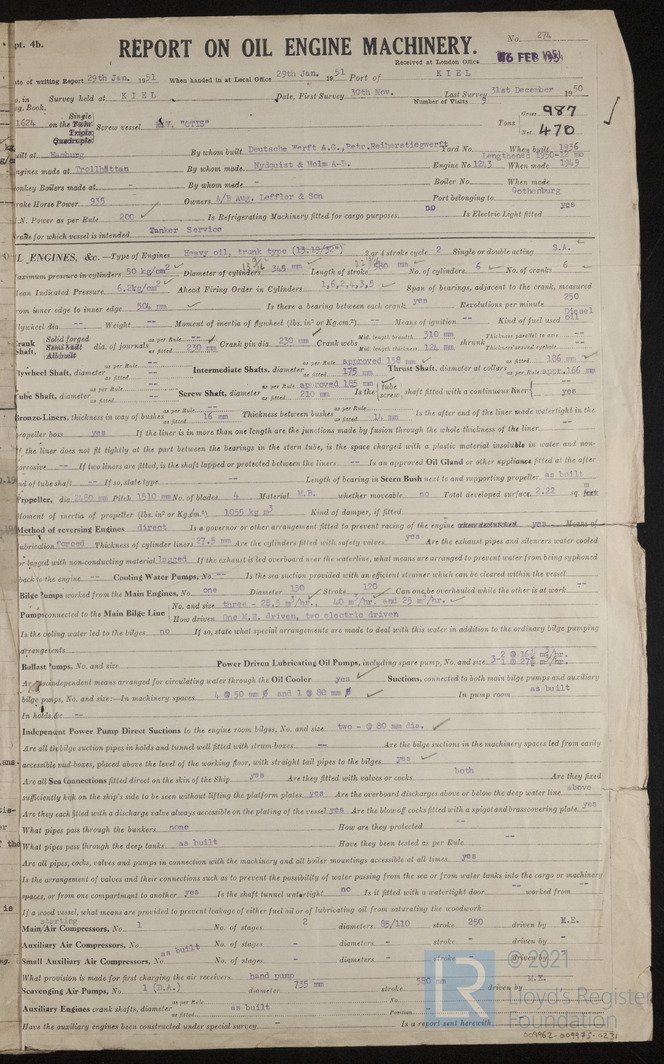 pt. 4b.
REPORT ON OIL ENGINE MACHINERY.
No. 274
Received at London Office 6 FEB 1951
ate of writing Report 29th Jan. 1951 When handed in at Local Office 29th Jan. 1951 Port of KIEL
o. in Survey held at KIEL Date, First Survey 30th Nov. Last Survey 31st December 1950
eg. Book. Number of Visits 9
1624 on the Single Twin Triple Quadruple Screw vessel M.V. "OTIS" Tons Gross 987 Net 470
uilt at Hamburg By whom built Deutsche Werft A.G., Betr.Reiherstiegwerft Yard No. When built 1936
Lengthened 1950-12 mo
ngines made at Trollhättan By whom made Nydqvist & Holm A-B. Engine No. 1243 When made 1949
onkey Boilers made at - By whom made - Boiler No. - When made -
rake Horse Power 935 Owners A/B Aug. Leffler & Son Port belonging to Gothenburg
.N. Power as per Rule 200 Is Refrigerating Machinery fitted for cargo purposes no Is Electric Light fitted yes
rade for which vessel is intended Tanker Service
IL ENGINES, &c.—Type of Engines Heavy oil, trunk type 2 or 4 stroke cycle 2 Single or double acting S.A.
aximum pressure in cylinders 50 kg/cm² Diameter of cylinders 345 mm Length of stroke 580 mm No. of cylinders 6 No. of cranks 6
ean Indicated Pressure 6.2kg/cm² Ahead Firing Order in Cylinders 1,6,2,4,3,5 Span of bearings, adjacent to the crank, measured
rom inner edge to inner edge 504 mm Is there a bearing between each crank yes Revolutions per minute 250
lywheel dia. -- Weight -- Moment of inertia of flywheel (lbs. in² or Kg.cm.²) -- Means of ignition -- Kind of fuel used Diesel oil
rank Shaft, Solid forged Semi built All built dia. of journals as per Rule -- as fitted 230 mm Crank pin dia. 230 mm Crank webs Mid. length breadth 310 mm Mid. length thickness 124 mm shrunk Thickness parallel to axis -- Thickness around eyehole --
lywheel Shaft, diameter as per Rule -- as fitted -- Intermediate Shafts, diameter as per Rule approved 158 mm as fitted 175 mm Thrust Shaft, diameter at collars as fitted 186 mm as per Rule appr.166 mm
ube Shaft, diameter as per Rule -- as fitted -- Screw Shaft, diameter as per Rule approved 185 mm as fitted 210 mm Is the {tube screw} shaft fitted with a continuous liner { -- yes
Bronze Liners, thickness in way of bushes as per Rule -- as fitted 16 mm Thickness between bushes as per Rule -- as fitted 14 mm Is the after end of the liner made watertight in the
propeller boss yes If the liner is in more than one length are the junctions made by fusion through the whole thickness of the liner --
f the liner does not fit tightly at the part between the bearings in the stern tube, is the space charged with a plastic material insoluble in water and non-
corrosive -- If two liners are fitted, is the shaft lapped or protected between the liners -- Is an approved Oil Gland or other appliance fitted at the after
nd of tube shaft -- If so, state type -- Length of bearing in Stern Bush next to and supporting propeller as built
Propeller, dia 2480 mm Pitch 1510 mm No. of blades 4 Material M.B. whether moveable no Total developed surface 2.22 sq feet m
Moment of inertia of propeller (lbs. in² or Kg.cm.²) 1055 kg m² Kind of damper, if fitted
Method of reversing Engines direct Is a governor or other arrangement fitted to prevent racing of the engine when declutched yes Means of
lubrication forced Thickness of cylinder liners 27.5 mm Are the cylinders fitted with safety valves yes Are the exhaust pipes and silencers water cooled
or lagged with non-conducting material lagged If the exhaust is led overboard near the waterline, what means are arranged to prevent water from being syphoned
back to the engine -- Cooling Water Pumps, No. -- Is the sea suction provided with an efficient strainer which can be cleared within the vessel --
Bilge Pumps worked from the Main Engines, No. one Diameter 150 Stroke 120 Can one be overhauled while the other is at work --
Pumps connected to the Main Bilge Line { No. and size three - 28.5 m³/hr., 40 m³/hr. and 25 m³/hr.
How driven One M.E. driven, two electric driven
Is the cooling water led to the bilges no If so, state what special arrangements are made to deal with this water in addition to the ordinary bilge pumping
arrangements
Ballast Pumps, No. and size Power Driven Lubricating Oil Pumps, including spare pump, No. and size 3 2 @ 16½ m³/hr. 1 @ 27½ m³/hr.
Are independent means arranged for circulating water through the Oil Cooler yes Suctions, connected to both main bilge pumps and auxiliary
bilge pumps, No. and size:—In machinery spaces 4 @ 50 mm ∅ and 1 @ 80 mm ∅ In pump room as built
In holds, &c --
Independent Power Pump Direct Suctions to the engine room bilges, No. and size two - @ 80 mm dia.
Are all the bilge suction pipes in holds and tunnel well fitted with strum-boxes -- Are the bilge suctions in the machinery spaces led from easily
accessible mud-boxes, placed above the level of the working floor, with straight tail pipes to the bilges yes
Are all Sea Connections fitted direct on the skin of the Ship yes Are they fitted with valves or cocks both Are they fixed
sufficiently high on the ship's side to be seen without lifting the platform plates yes Are the overboard discharges above or below the deep water line above
Are they each fitted with a discharge valve always accessible on the plating of the vessel yes Are the blow off cocks fitted with a spigot and brass covering plate yes
What pipes pass through the bunkers none How are they protected --
What pipes pass through the deep tanks as built Have they been tested as per Rule --
Are all pipes, cocks, valves and pumps in connection with the machinery and all boiler mountings accessible at all times yes
Is the arrangement of valves and their connections such as to prevent the possibility of water passing from the sea or from water tanks into the cargo or machinery
spaces, or from one compartment to another yes Is the shaft tunnel watertight no Is it fitted with a watertight door -- worked from --
If a wood vessel, what means are provided to prevent leakage of either fuel oil or of lubricating oil from saturating the woodwork
starting
Main Air Compressors, No. 1 No. of stages 2 diameters 85/110 stroke 250 driven by M.E.
Auxiliary Air Compressors, No. as built No. of stages - diameters - stroke - driven by -
Small Auxiliary Air Compressors, No. No. of stages - diameters - stroke - driven by -
What provision is made for first charging the air receivers hand pump
Scavenging Air Pumps, No. 1 (D.A.) diameter 735 mm stroke 580 mm driven by M.E.
Auxiliary Engines crank shafts, diameter as per Rule as fitted as built No - Position -
Have the auxiliary engines been constructed under special survey - Is a report sent herewith
© 2021
LR
Lloyd's Register
Foundation
009962-009975-0271